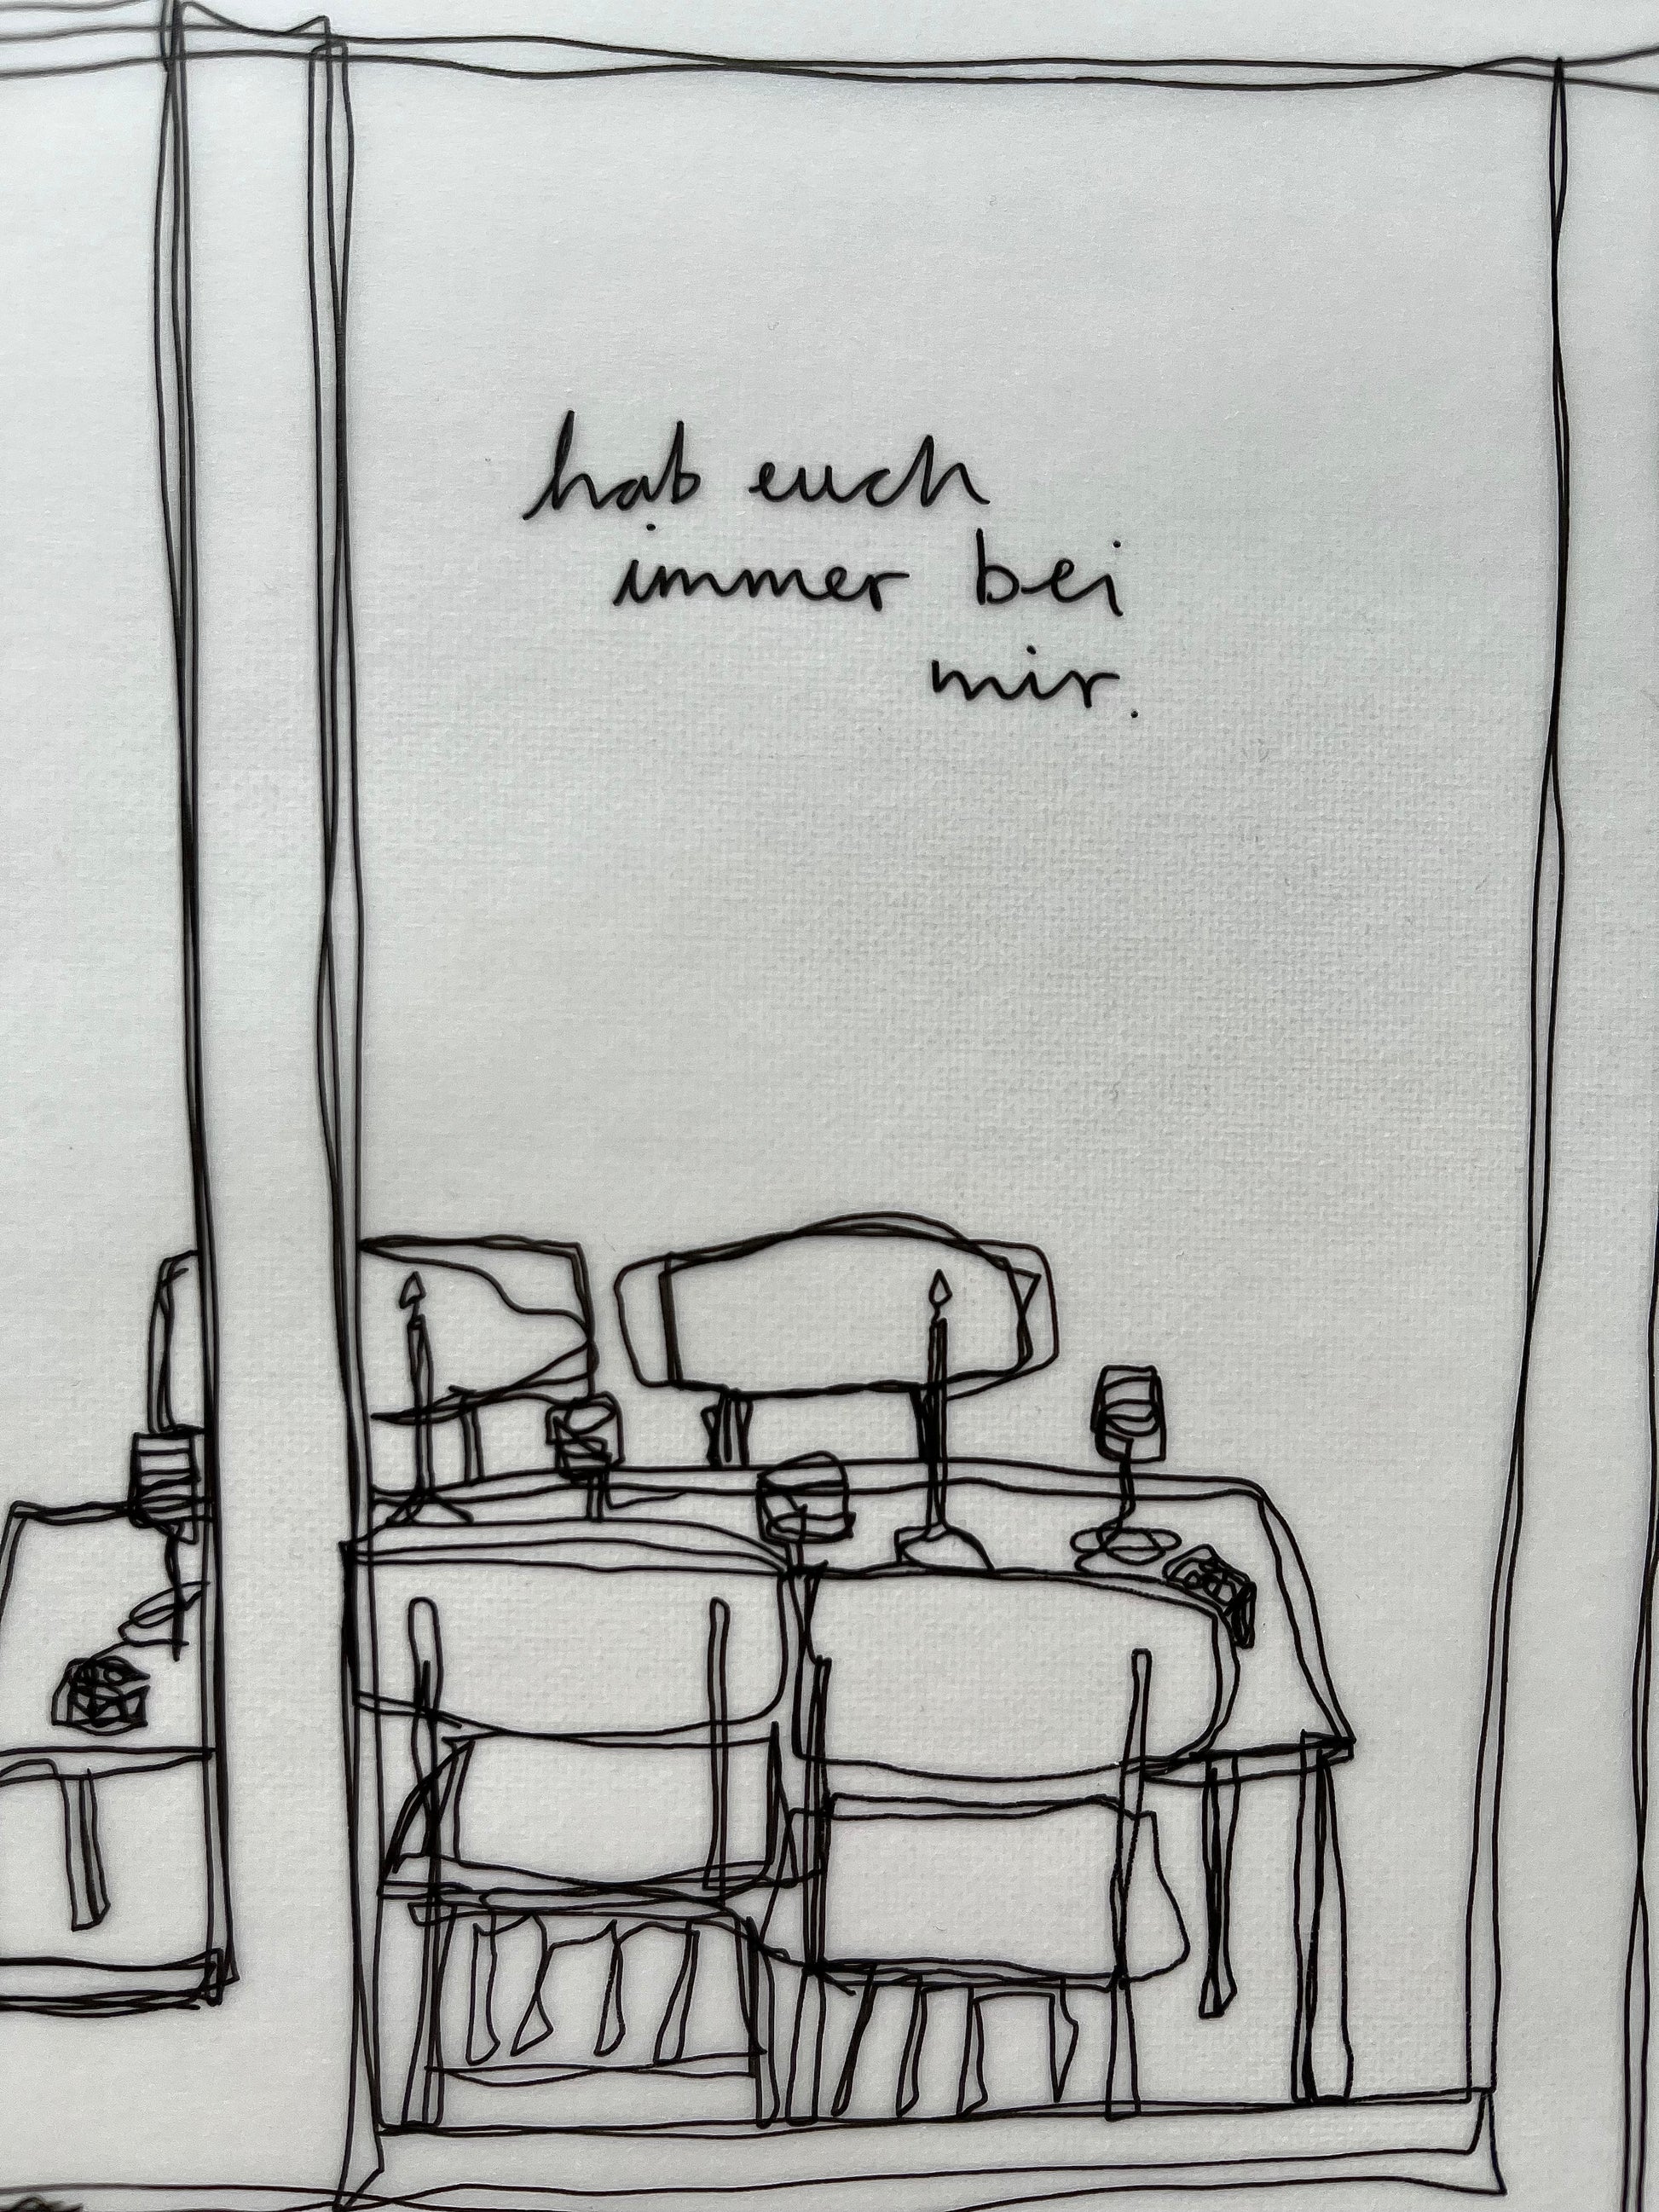 hab euch
immer bei
mir.